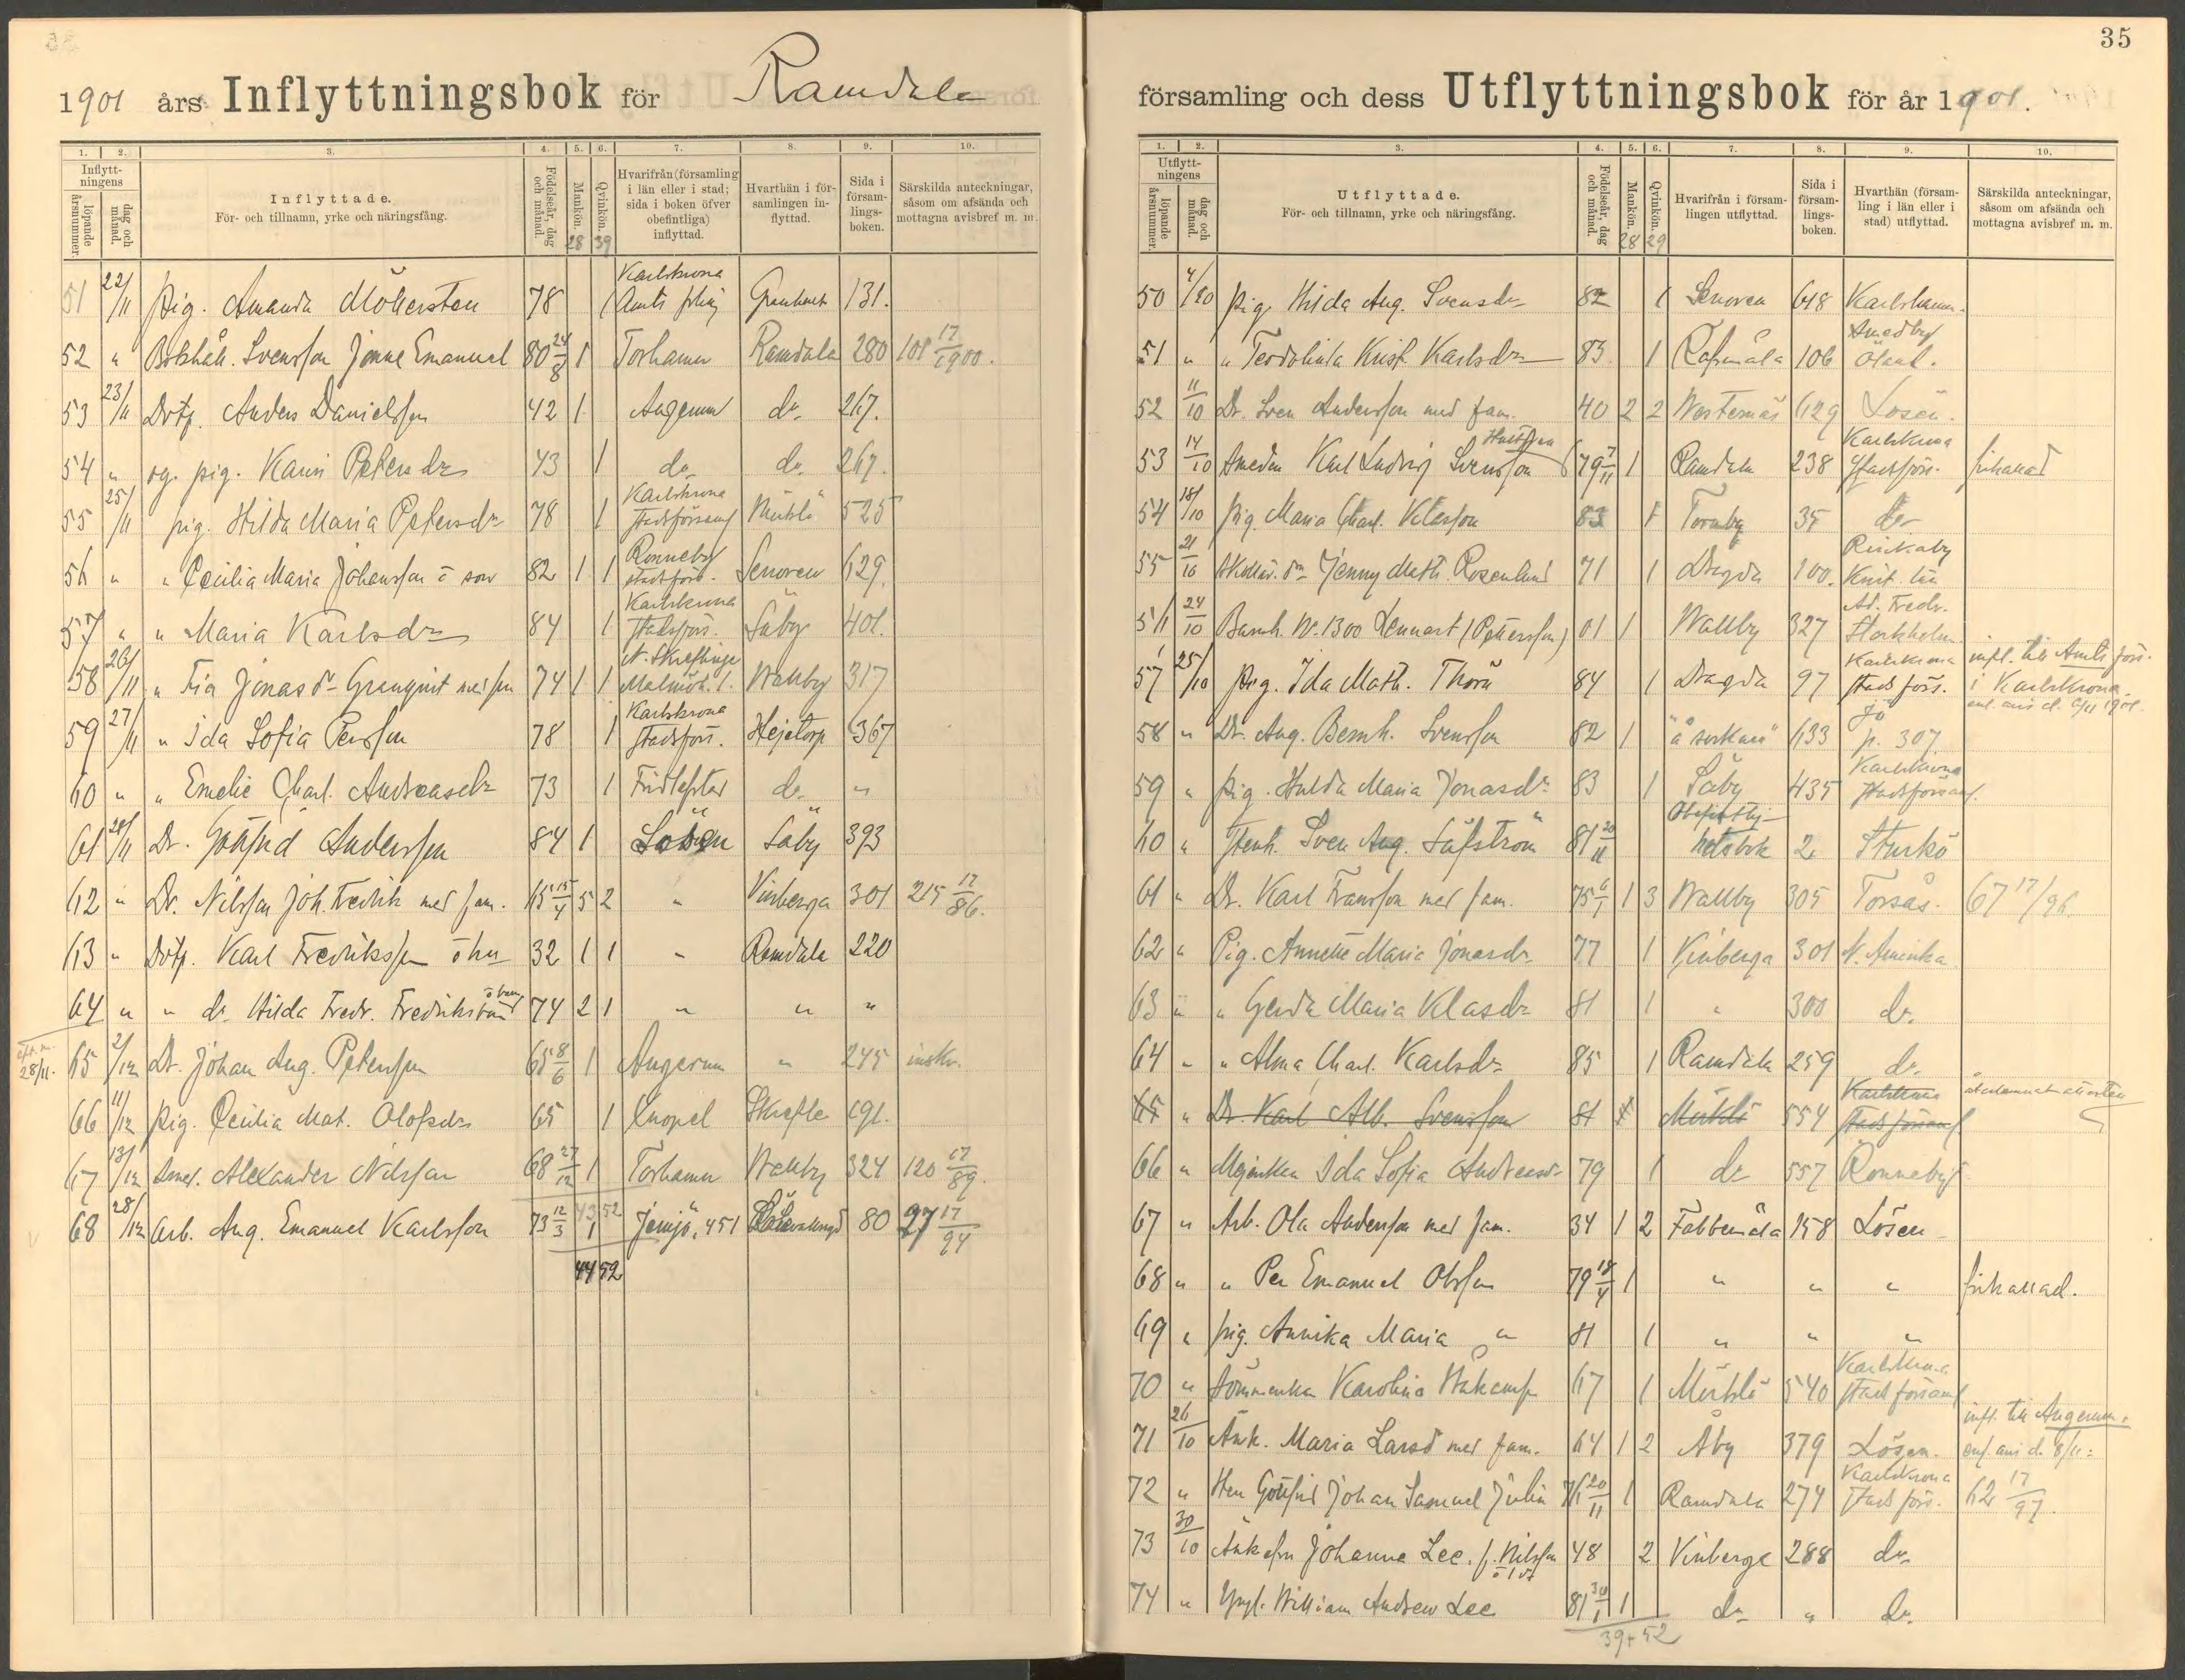 1901 års Inflyttningsbok för Ramdala
1. 2. 3. 4. 5. 6. 7. 8. 9. 10.
Inflytt-
ningens
löpande årsnummer.
dag och månad.
Inflyttade.
För- och tillnamn, yrke och näringsfång.
Födelseår, dag och månad.
Mankön. 28
Qvinkön. 39
Hvarifrån (församling i län eller i stad; sida i boken öfver obefintliga) inflyttad.
Hvarthän i för-
samlingen in-
flyttad.
Sida i
försam-
lings-
boken.
Särskilda anteckningar,
såsom om afsända och
mottagna avisbref m. m.
51 22/11 pig. Amanda Möllersten 78 1 Karlskrona Amts 131.
52 " Svensson Jonne Emanuel 80 24/8 1 Torhamn Ramdala 280 108 17/1900.
53 23/11 Anders Danielsson 42 1 Augerum do 267.
54 " og. pig. Karin Petersdr 43 1 do do 267.
55 25/11 pig. Hilda Maria Petersdr 78 1 Karlskrona stadsförsaml 525
56 " " Cecilia Maria Johansson o son 82 1 1 Ronneby stadsförs. Senoren 629.
57 " " Maria Karlsdr 84 1 Karlskrona stadsförs. Säby 401.
58 26/11 " Fia Jonasdr Granquist med son 74 1 1 Malmöh. l. Wallby 317
59 27/11 " Ida Sofia Persson 78 1 Karlskrona stadsförs. Hejetorp 367
60 " " Emelie Charl. Andreasdr 73 1 Fridlefstad do "
61 28/11 Dr. Gottfrid Andersson 84 1 Lösen Säby 393
62 " Dr. Nilsson Joh. Fredrik med fam. 65 15/4 5 2 " Vinberga 301 215 17/86.
63 " Karl Fredriksson o hu 32 1 1 " Ramdala 220
64 " " do Hilda Fredr. 74 2 1 " " "
28/11. 65 2/12 Dr. Johan Aug. Petersson 65 8/6 1 Augerum " 245 inskr.
66 11/12 pig. Cecilia Mat. Olofsdr 65 1 691.
67 13/12 Alexander Nilsson 68 27/12 1 Torhamn Wallby 324 120 17/89.
68 28/12 Arb. Aug. Emanuel Karlsson 73 12/3 1 Jemjö, 451 80 27 17/94
43 52
44 52
35
församling och dess Utflyttningsbok för år 1901.
1. 2. 3. 4. 5. 6. 7. 8. 9. 10.
Utflytt-
ningens
löpande årsnummer.
dag och månad.
Utflyttade.
För- och tillnamn, yrke och näringsfång.
Födelseår, dag och månad.
Mankön. 28
Qvinkön. 29
Hvarifrån i försam-
lingen utflyttad.
Sida i
försam-
lings-
boken.
Hvarthän (försam-
ling i län eller i
stad) utflyttad.
Särskilda anteckningar,
såsom om afsända och
mottagna avisbref m. m.
50 4/10 pig. Hilda Aug. Svensdr 82 1 Senoren 648 Karlshamn.
51 " " Teodolinda Krist. Karlsdr 83. 1 106 Smedby Öland.
52 11/10 Dr. Sven Andersson med fam. 40 2 2 629 Lösen.
53 14/10 Smeden Karl Ludvig Svensson 79 7/11 1 Ramdala 238 Karlskrona Stadsförs. frikallad
54 18/10 pig. Maria Charl. Klasson 83 1 Torneby 35 do
55 21/10 Jenny Math. Rosenlund 71 1 Dragda 100. Rinkaby Krist. län
56 24/10 Barnh. No. 1300 Lennart (Pettersson) 01 1 Wallby 327 Ad. Fredr. Stockholm.
57 25/10 pig. Ida Math. Thörn 84 1 Dragda 97 Karlskrona stadsförs. infl. till Amts förs. i Karlskrona.
58 " Dr. Aug. Bernh. Svensson 82 1 633 p. 307.
59 " pig. Hulda Maria Jonasdr 83 1 Säby 435 Karlskrona stadsförsaml.
60 " Stenh. Sven Aug. Säfström 81 20/11 Obefintlig-
hetsbok 2. Sturkö
61 " Dr. Karl Fransson med fam. 75 6/1 1 3 Wallby 305 Torsås. 67 17/96.
62 " Pig. Annette Maria Jonasdr. 77 1 Vinberga 301 N. Amerika
63 " " Gerda Maria Klasdr 81 1 " 300 do.
64 " " Alma Charl. Karlsdr 85 1 Ramdala 259 do.
65 " Dr. Karl Alb. Svensson 81 1 554 Karlskrona Stadsförsaml återlemnat attesten
66 " Mejerskan Ida Sofia Andreasdr 79 1 do 557 Ronneby
67 " Arb. Ola Andersson med fam. 34 1 2 Fabbemåla 158 Lösen
68 " " Per Emanuel Olsson 79 18/4 1 " " " frikallad.
69 " pig. Annika Maria " 81 1 " " "
70 " Sömmerskan Karolina 67 1 540 Karlskrona Stadsförsaml
71 26/10 Änk. Maria Larsd med fam. 64 1 2 Åby 379 Lösen. infl. till Augerum. enl. avi d. 8/11.
72 " Hem. Gottfrid Johan Samuel Julin 76 20/11 1 Ramdala 274 Karlskrona Stads förs. 62 17/97.
73 30/10 Johanna Lee. f. Nilsson 48 2 Vinberga 288 do
74 " Yngl. William Andrew Lee 81 30/1 1 do " do.
39 + 52